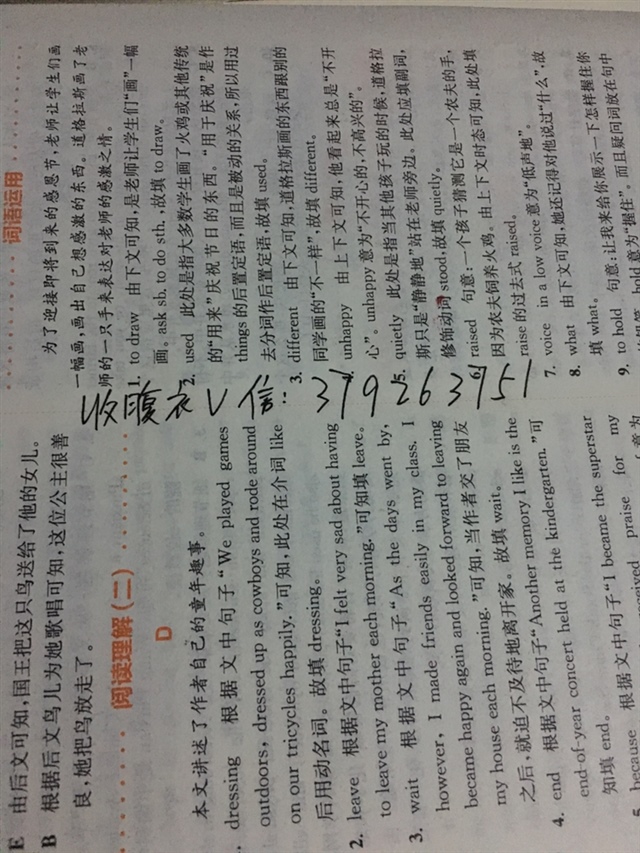 E 由后文可知,国王把这只鸟送给了他的女儿。
B 根据后文鸟儿为她歌唱可知,这位公主很善
良,她把鸟放走了。
阅读理解(二)
D
本文讲述了作者自己的童年趣事。
dressing 根据文中句子“We played games
outdoors, dressed up as cowboys and rode around
on our tricycles happily.”可知,此处在介词 like
后用动名词。故填 dressing。
2. leave 根据文中句子“I felt very sad about having
to leave my mother each morning.”可知填 leave。
3. wait 根据文中句子“As the days went by,
however, I made friends easily in my class. I
became happy again and looked forward to leaving
my house each morning.”可知,当作者交了朋友
之后,就迫不及待地离开家。故填 wait。
4. end 根据文中句子“Another memory I like is the
end-of-year concert held at the kindergarten.”可
知填 end。
5. because 根据文中句子“I became the superstar
received praise for my
收腹衣V信:
词语运用
为了迎接即将到来的感恩节,老师让学生们画
一幅画,画出自己想感激的东西。道格拉斯画了老
师的一只手来表达对老师的感激之情。
1. to draw 由下文可知,是老师让学生们“画”一幅
画。ask sb. to do sth.,故填 to draw。
2. used 此处是指大多数学生画了火鸡或其他传统
的“用来”庆祝节日的东西。“用于庆祝”是作
things 的后置定语,而且是被动的关系,所以用过
去分词作后置定语,故填 used。
3. different 由下文可知,道格拉斯画的东西跟别的
同学画的“不一样”,故填 different。
unhappy 由上下文可知,他看起来总是“不开
心”。unhappy 意为“不开心的,不高兴的”。
5. quietly 此处是指当其他孩子玩的时候,道格拉
斯只是“静静地”站在老师旁边。此处应填副词,
修饰动词 stood,故填 quietly。
raised 句意:一个孩子猜测它是一个农夫的手,
因为农夫饲养火鸡。由上下文时态可知,此处填
raise 的过去式 raised。
7. voice in a low voice 意为“低声地”。
8. what 由下文可知,她还记得对他说过“什么”,故
填 what。
9. to hold 句意:让我来给你展示一下怎样握住你
hold 意为“握住”。而且疑问词放在句中